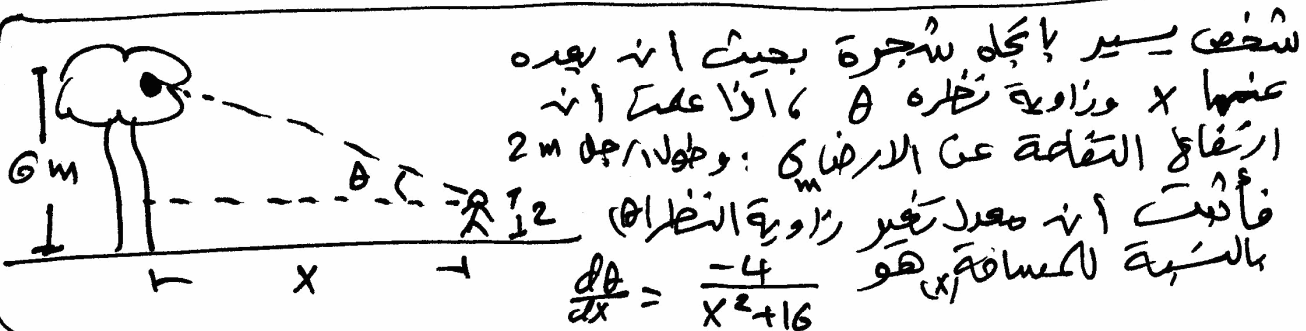 شخص يسير باتجاه شجرة بحيث ان بعده
عنها x وزاوية نظره θ ، اذا علمت أن
ارتفاع التفاحة عن الارض 6 m ؛ وطول الرجل 2 m
فأثبت أن معدل تغير زاوية النظر (θ)
بالنسبة للمسافة (x) هو dθ/dx = -4/(x²+16)
6 m
θ
2
x